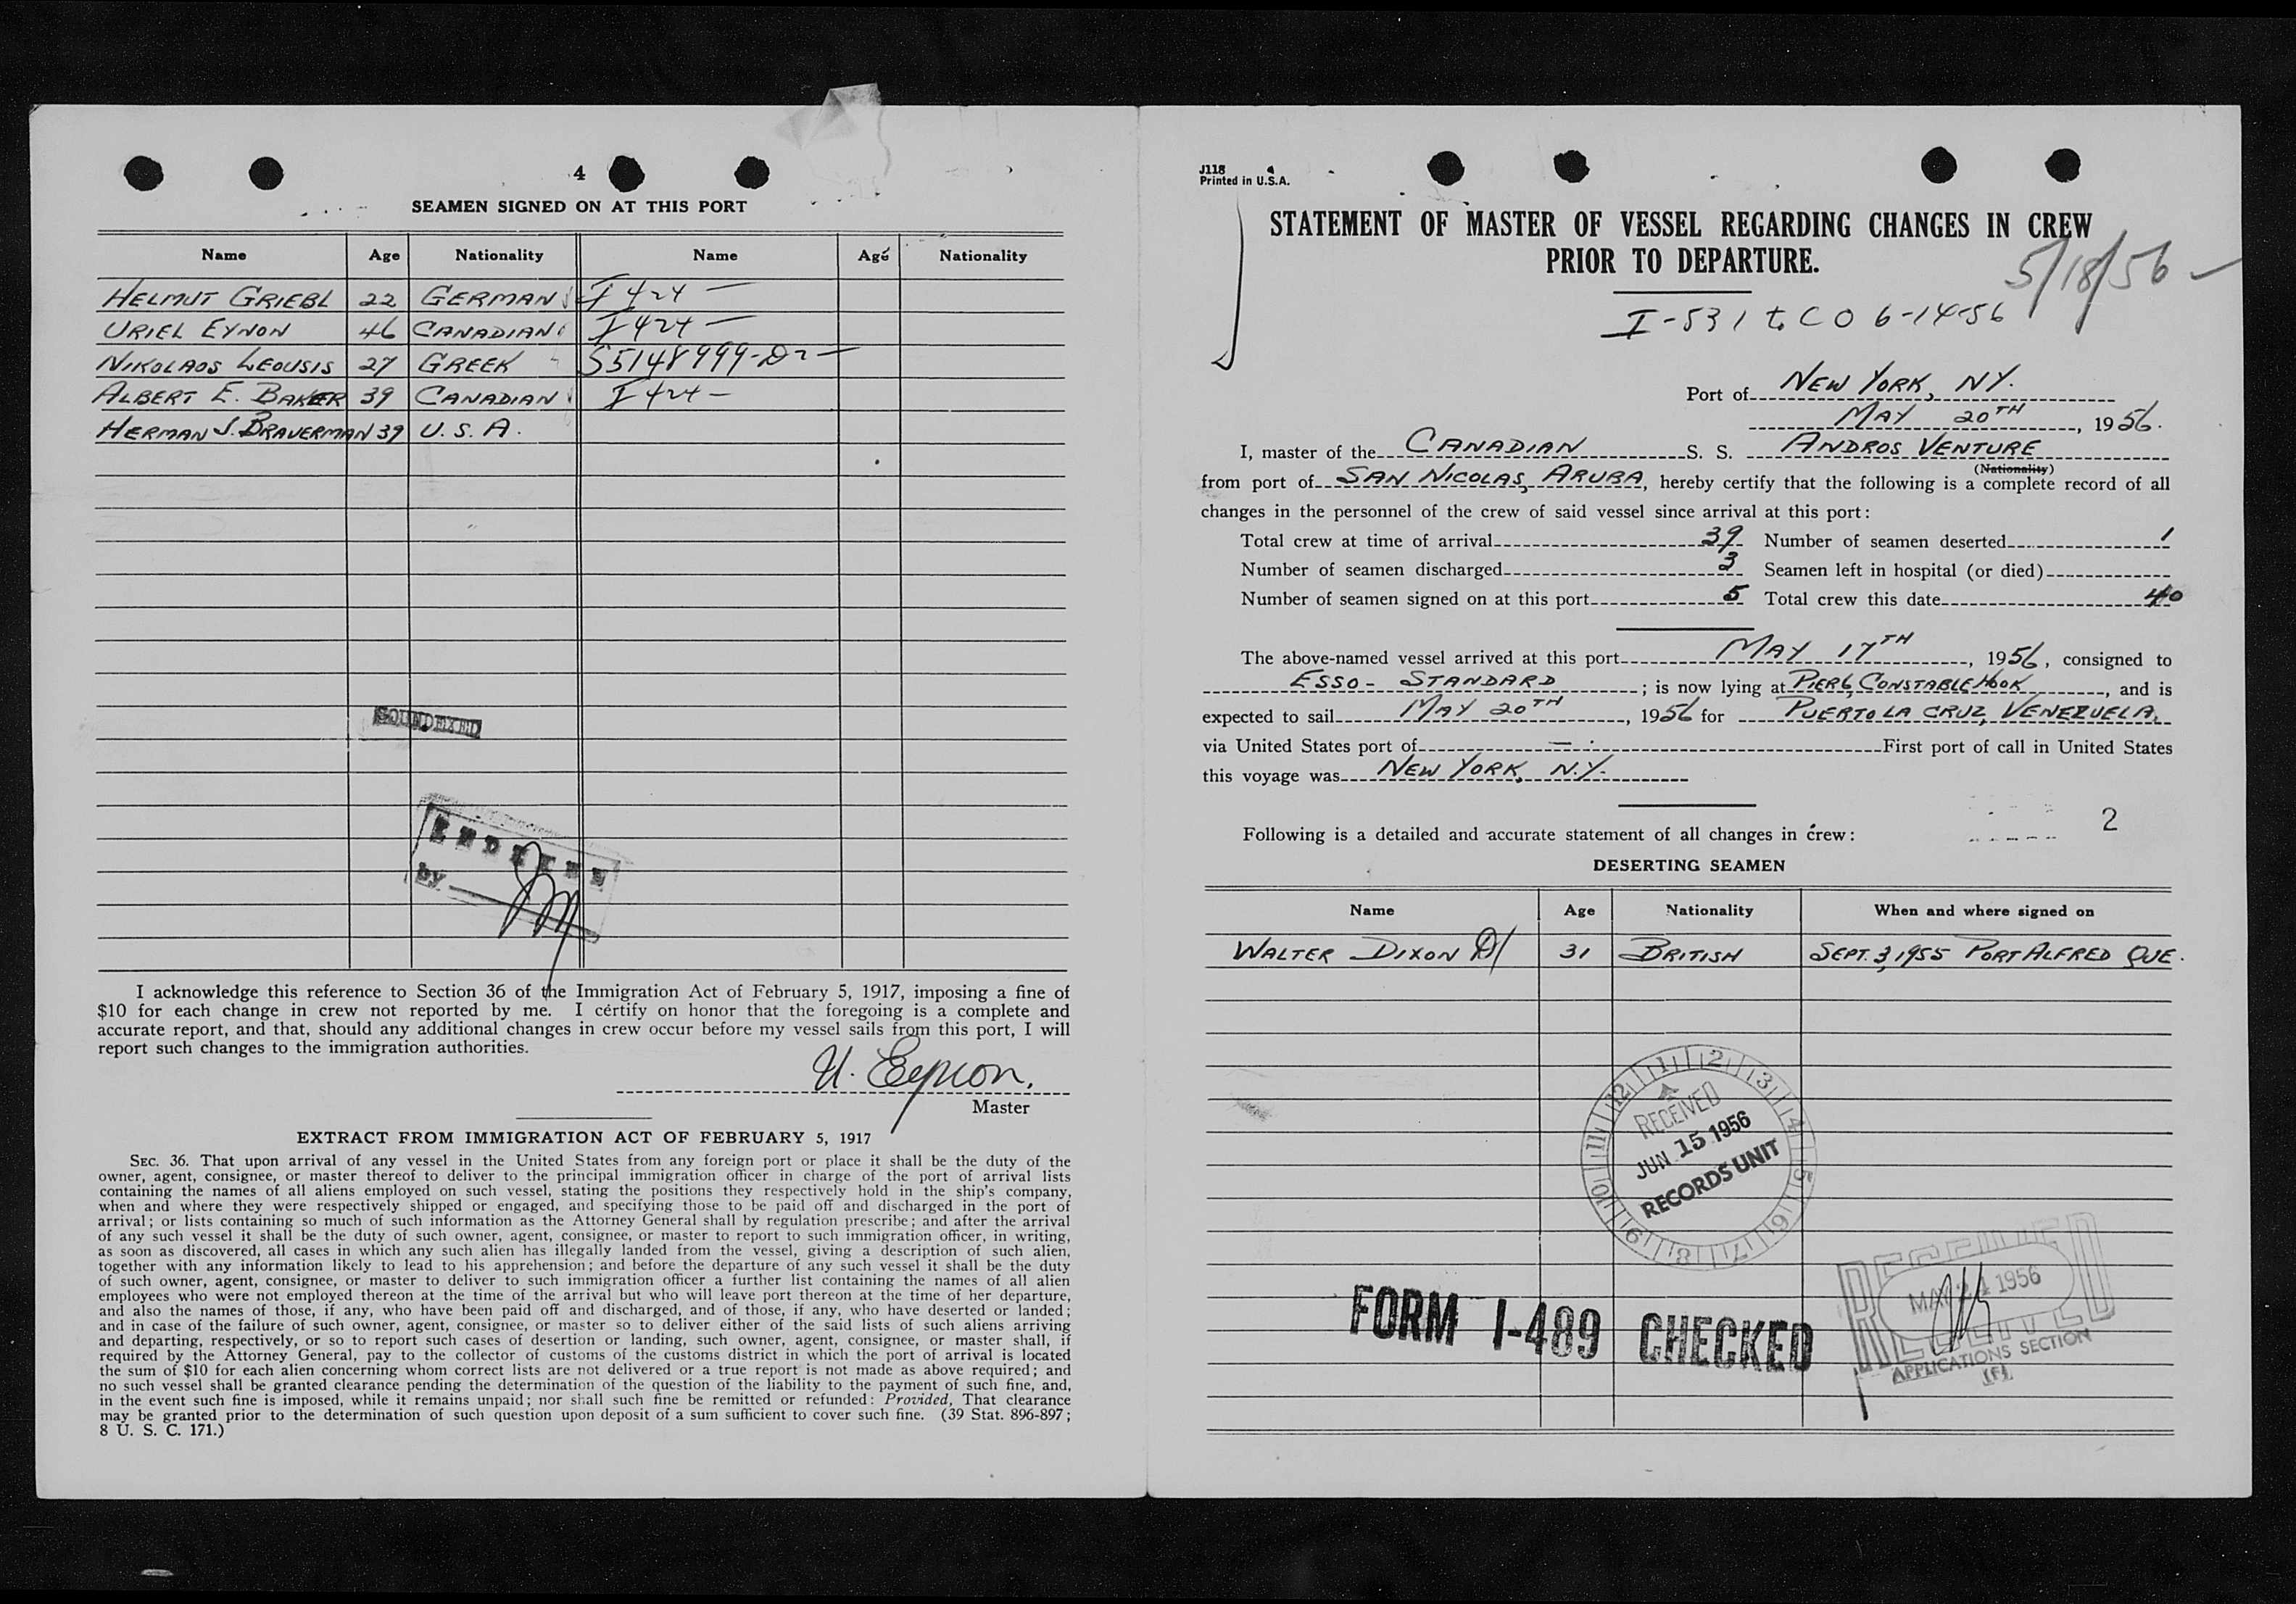 4
SEAMEN SIGNED ON AT THIS PORT
Name Age Nationality Name Age Nationality
HELMUT GRIEBL 22 GERMAN I 424 —
URIEL EYNON 46 CANADIAN I 424 —
NIKOLAOS LEOUSIS 27 GREEK S5148999-D2 —
ALBERT E. BAKER 39 CANADIAN I 424 —
HERMAN J. BRAVERMAN 39 U.S.A.
SOUNDEXED
INDEXED
by
I acknowledge this reference to Section 36 of the Immigration Act of February 5, 1917, imposing a fine of
$10 for each change in crew not reported by me. I certify on honor that the foregoing is a complete and
accurate report, and that, should any additional changes in crew occur before my vessel sails from this port, I will
report such changes to the immigration authorities.
U. Eynon.
Master
EXTRACT FROM IMMIGRATION ACT OF FEBRUARY 5, 1917
SEC. 36. That upon arrival of any vessel in the United States from any foreign port or place it shall be the duty of the
owner, agent, consignee, or master thereof to deliver to the principal immigration officer in charge of the port of arrival lists
containing the names of all aliens employed on such vessel, stating the positions they respectively hold in the ship's company,
when and where they were respectively shipped or engaged, and specifying those to be paid off and discharged in the port of
arrival; or lists containing so much of such information as the Attorney General shall by regulation prescribe; and after the arrival
of any such vessel it shall be the duty of such owner, agent, consignee, or master to report to such immigration officer, in writing,
as soon as discovered, all cases in which any such alien has illegally landed from the vessel, giving a description of such alien,
together with any information likely to lead to his apprehension; and before the departure of any such vessel it shall be the duty
of such owner, agent, consignee, or master to deliver to such immigration officer a further list containing the names of all alien
employees who were not employed thereon at the time of the arrival but who will leave port thereon at the time of her departure,
and also the names of those, if any, who have been paid off and discharged, and of those, if any, who have deserted or landed;
and in case of the failure of such owner, agent, consignee, or master so to deliver either of the said lists of such aliens arriving
and departing, respectively, or so to report such cases of desertion or landing, such owner, agent, consignee, or master shall, if
required by the Attorney General, pay to the collector of customs of the customs district in which the port of arrival is located
the sum of $10 for each alien concerning whom correct lists are not delivered or a true report is not made as above required; and
no such vessel shall be granted clearance pending the determination of the question of the liability to the payment of such fine, and,
in the event such fine is imposed, while it remains unpaid; nor shall such fine be remitted or refunded: Provided, That clearance
may be granted prior to the determination of such question upon deposit of a sum sufficient to cover such fine. (39 Stat. 896-897;
8 U. S. C. 171.)
J118
Printed in U.S.A.
STATEMENT OF MASTER OF VESSEL REGARDING CHANGES IN CREW
PRIOR TO DEPARTURE.
5/18/56 —
I-531 to C O 6-14-56
Port of NEW YORK, NY.
MAY 20TH, 1956.
I, master of the CANADIAN S. S. ANDROS VENTURE
(Nationality)
from port of SAN NICOLAS, ARUBA, hereby certify that the following is a complete record of all
changes in the personnel of the crew of said vessel since arrival at this port:
Total crew at time of arrival 39 Number of seamen deserted 1
Number of seamen discharged 3 Seamen left in hospital (or died)
Number of seamen signed on at this port 5 Total crew this date 40
The above-named vessel arrived at this port MAY 17TH, 1956, consigned to
ESSO-STANDARD; is now lying at PIER 6, CONSTABLE HOOK, and is
expected to sail MAY 20TH, 1956 for PUERTO LA CRUZ, VENEZUELA,
via United States port of — First port of call in United States
this voyage was NEW YORK, N.Y.
2
Following is a detailed and accurate statement of all changes in crew:
DESERTING SEAMEN
Name Age Nationality When and where signed on
WALTER DIXON 31 BRITISH SEPT. 3, 1955 PORT ALFRED QUE.
12 1 2 3 4 5 6 7 8 9 10 11
RECEIVED
JUN 15 1956
RECORDS UNIT
RECEIVED
MAY 24 1956
APPLICATIONS SECTION
FORM I-489 CHECKED